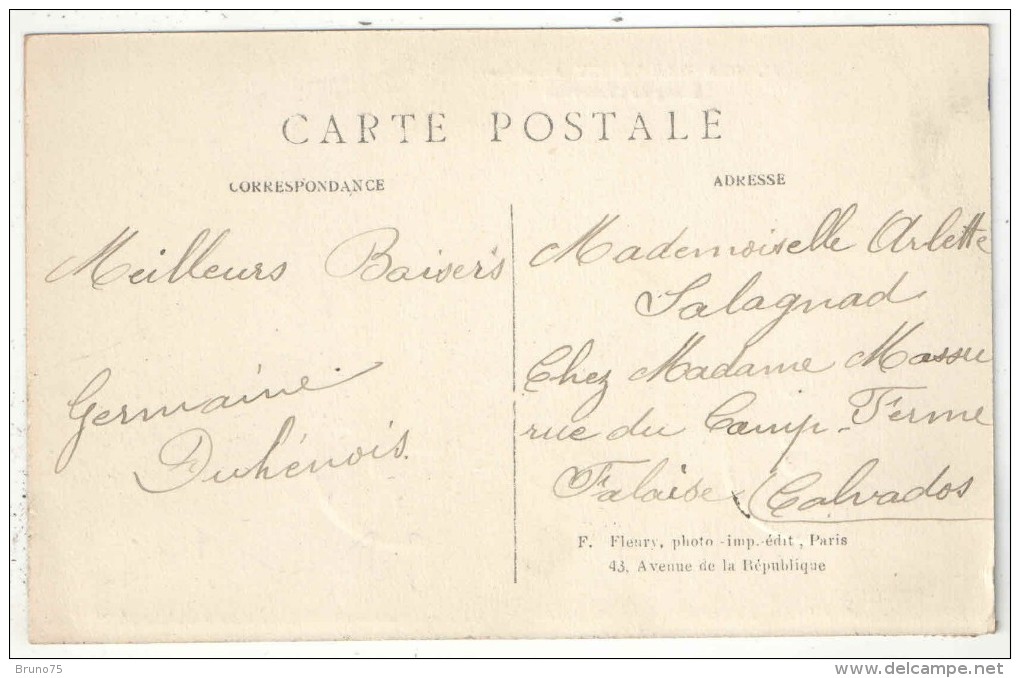 CARTE POSTALE
CORRESPONDANCE
ADRESSE
Meilleurs Baisers
Germaine
Duhénois.
Mademoiselle Arlette
Salagnad
Chez Madame Massu
rue du Camp-Ferme
Falaise (Calvados
F. Fleury, photo-imp.-édit, Paris
43, Avenue de la République
Bruno75
www.delcampe.net